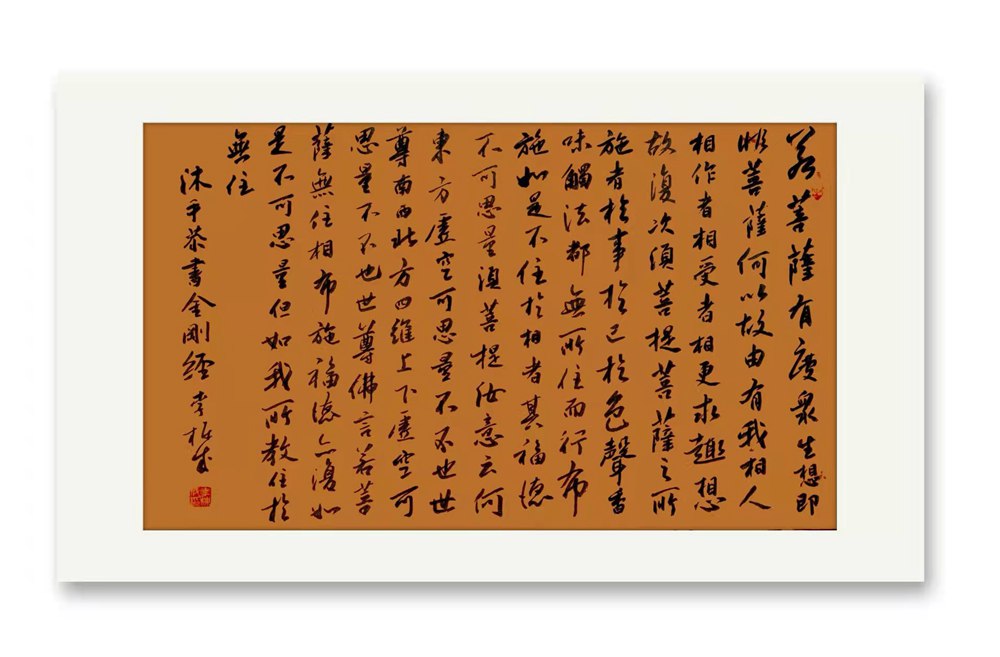 若菩薩有度衆生想即
菩薩何以故由有我相人
相作者相受者相更求趣想
故復次須菩提菩薩之所
施者於事於己於色聲香
味觸法都無所住而行布
施如是不住於相者其福德
不可思量須菩提汝意云何
東方虛空可思量不不也世
尊南西北方四維上下虛空可
思量不不也世尊佛言若菩
薩無住相布施福德亦復如
是不可思量但如我所教住於
無住
沐手恭書金剛經